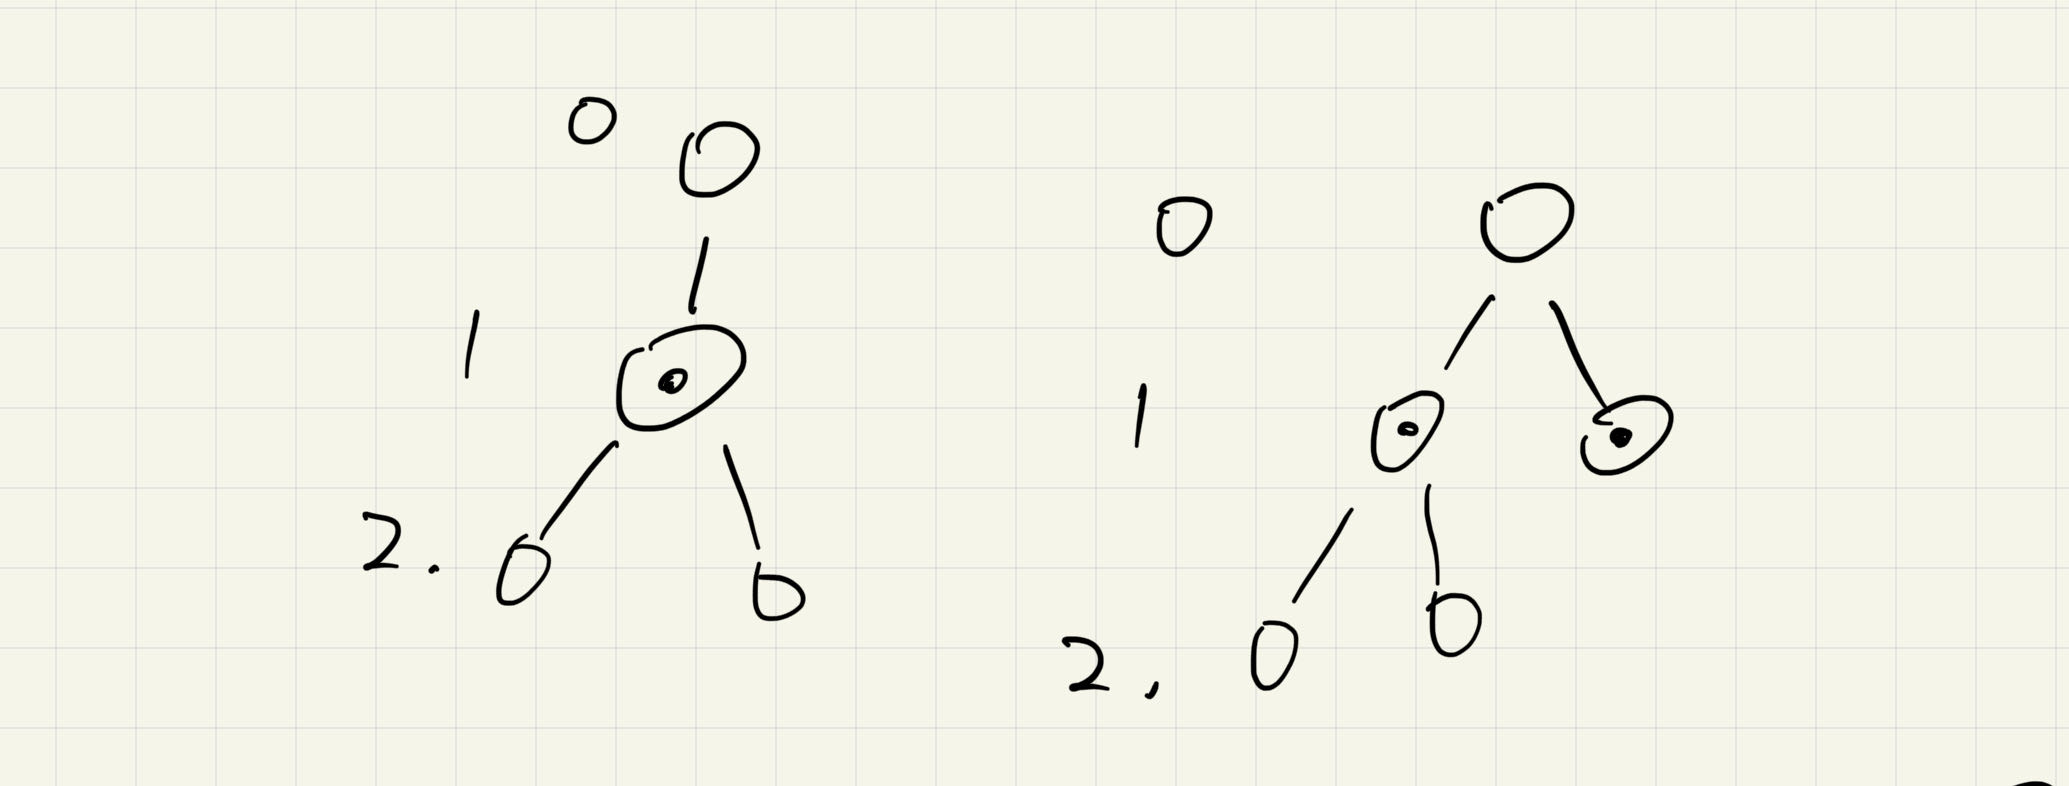 0
1
2.
0
1
2.